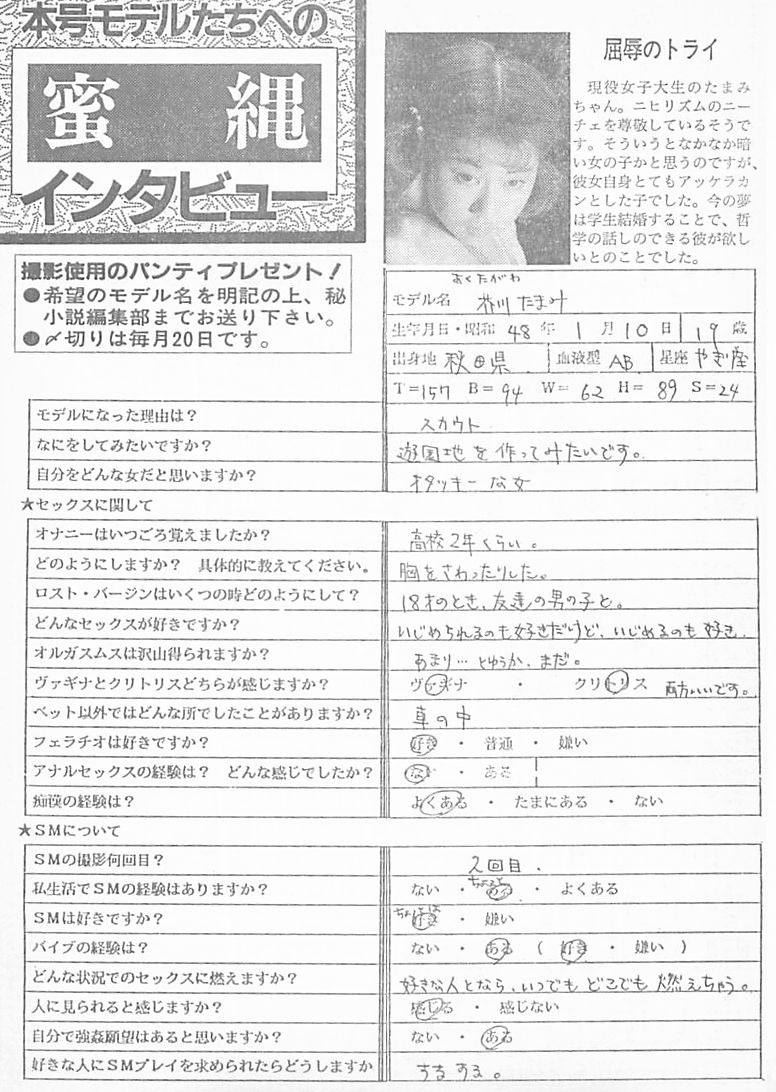 本号モデルたちへの
蜜縄
インタビュー
撮影使用のパンティプレゼント!
●希望のモデル名を明記の上、秘
小説編集部までお送り下さい。
●〆切りは毎月20日です。
屈辱のトライ
現役女子大生のたまみ
ちゃん。ニヒリズムのニー
チェを尊敬しているそうで
す。そういうとなかなか暗
い女の子かと思うのですが、
彼女自身とてもアッケラカ
ンとした子でした。今の夢
は学生結婚することで、哲
学の話しのできる彼が欲し
いとのことでした。
あくたがわ
モデル名 芥川 たまみ
生年月日・昭和 48 年 1 月 10 日 19 歳
出身地 秋田県 血液型 AB 星座 やぎ座
T=157 B=94 W=62 H=89 S=24
モデルになった理由は? スカウト
なにをしてみたいですか? 遊園地を作ってみたいです。
自分をどんな女だと思いますか? オタッキーな女
★セックスに関して
ロスト・バージンはいくつの時どのようにして? 18才のとき、友達の男の子と。
どんなセックスが好きですか? いじめられるのも好きだけど、いじめるのも好き.
オルガスムスは沢山得られますか? あまり…とゆうか、まだ。
ヴァギナとクリトリスどちらが感じますか? ヴァギナ ・ クリトリス 両方いいです。
ベット以外ではどんな所でしたことがありますか? 車の中
フェラチオは好きですか? 好き ・ 普通 ・ 嫌い
アナルセックスの経験は? どんな感じでしたか? ない ・ ある
痴漢の経験は? よくある ・ たまにある ・ ない
★SMについて
SMの撮影何回目? 2回目.
私生活でSMの経験はありますか? ない ・ ちょっと ある ・ よくある
SMは好きですか? 好き ・ 嫌い
バイブの経験は? ない ・ ある ( 好き ・ 嫌い )
どんな状況でのセックスに燃えますか? 好きな人となら、いつでもどこでも燃えちゃう。
人に見られると感じますか? 感じる ・ 感じない
自分で強姦願望はあると思いますか? ない ・ ある
好きな人にSMプレイを求められたらどうしますか するする。